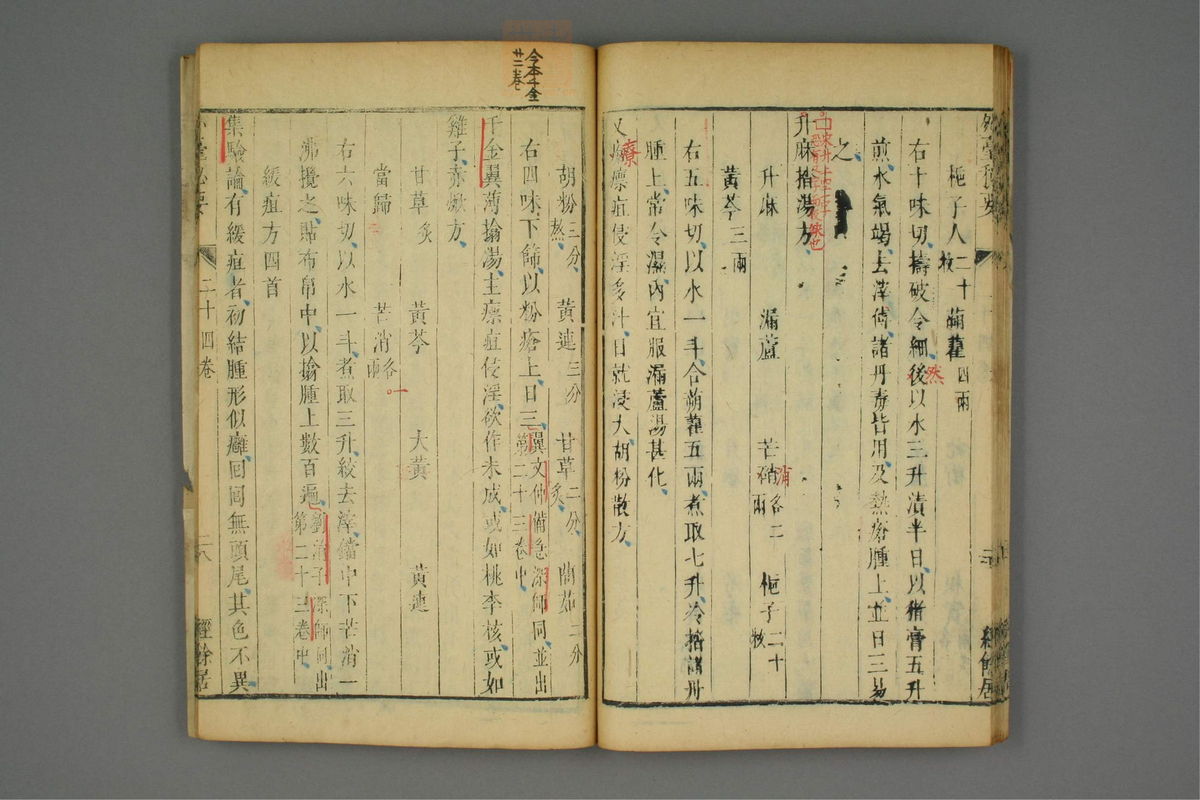 梔子人二十枚 蒴藋四兩
右十味切擣破令細後以水三升漬半日以猪膏五升
煎水氣竭去滓傅諸丹毒皆用及熱瘡腫上並日三易
之
升麻搨湯方
升麻 漏蘆 芒硝各二兩 梔子二十枚
黃芩三兩
右五味切以水一斗合蒴藋五兩煮取七升冷搨諸丹
腫上常令濕內宜服漏蘆湯甚化
又療瘭疽侵淫多汁日就浸大胡粉散方
今本千金
廿二卷
胡粉三分熬 黃連三分 甘草二分炙 䕡茹二分
右四味下篩以粉瘡上日三翼文仲備急深師同並出第二十三卷中
千金翼薄搨湯主瘭疽侵淫欲作未成或如桃李核或如
雞子赤㷉方
甘草炙 黃芩 大黃 黃連
當歸 芒消各一兩
右六味切以水一斗煮取三升絞去滓鐺中下芒消一
沸攪之貼布帛中以搨腫上數百遍劉涓子深師同出第二十三卷中
緩疽方四首
集驗論有緩疽者初結腫形似癰回回無頭尾其色不異
二十四卷
經餘居